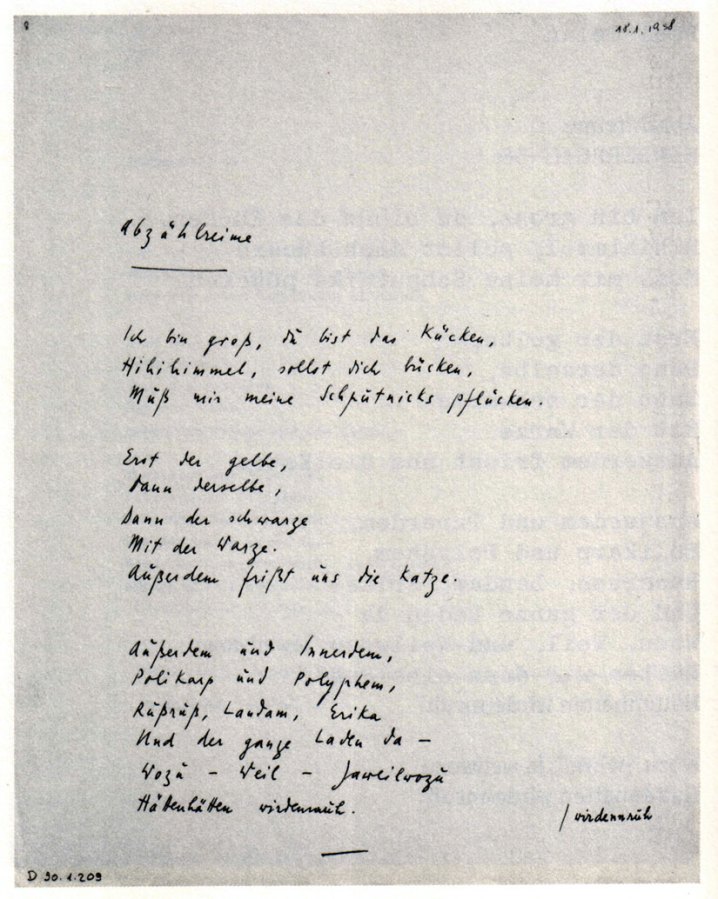 18.1.1958
Abzählreime
Ich bin groß, du bist das Kücken,
Hihihimmel, sollst dich bücken,
Muß mir meine Schputnicks pflücken.
Erst der gelbe,
Dann derselbe,
Dann der schwarze
Mit der Warze.
Außerdem frißt uns die Katze.
Außerdem und Innerdem,
Polikarp und Polyphem,
Rußruß, Landam, Erika
Und der ganze Laden da –
Wozu – Weil – Jaweilwozu
Hättenhätten wirdennruh.
/ wirdennruh
D 90.1.209